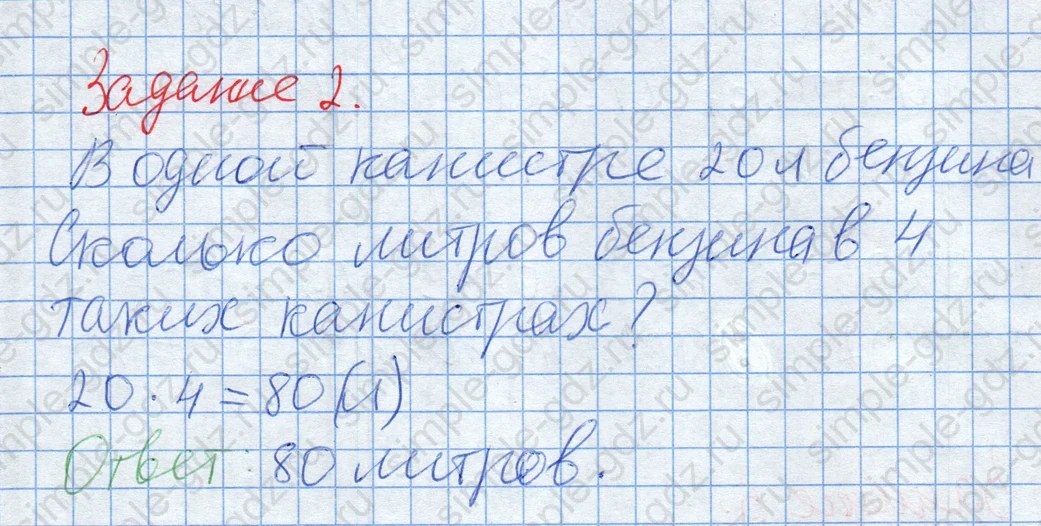 Задание 2.
В одной канистре 20 л бензина
Сколько литров бензина в 4
таких канистрах?
20 · 4 = 80 (л)
Ответ: 80 литров.
simple-gdz.ru